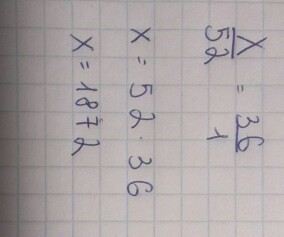 X/52 = 36/1
X = 52 · 36
X = 1872